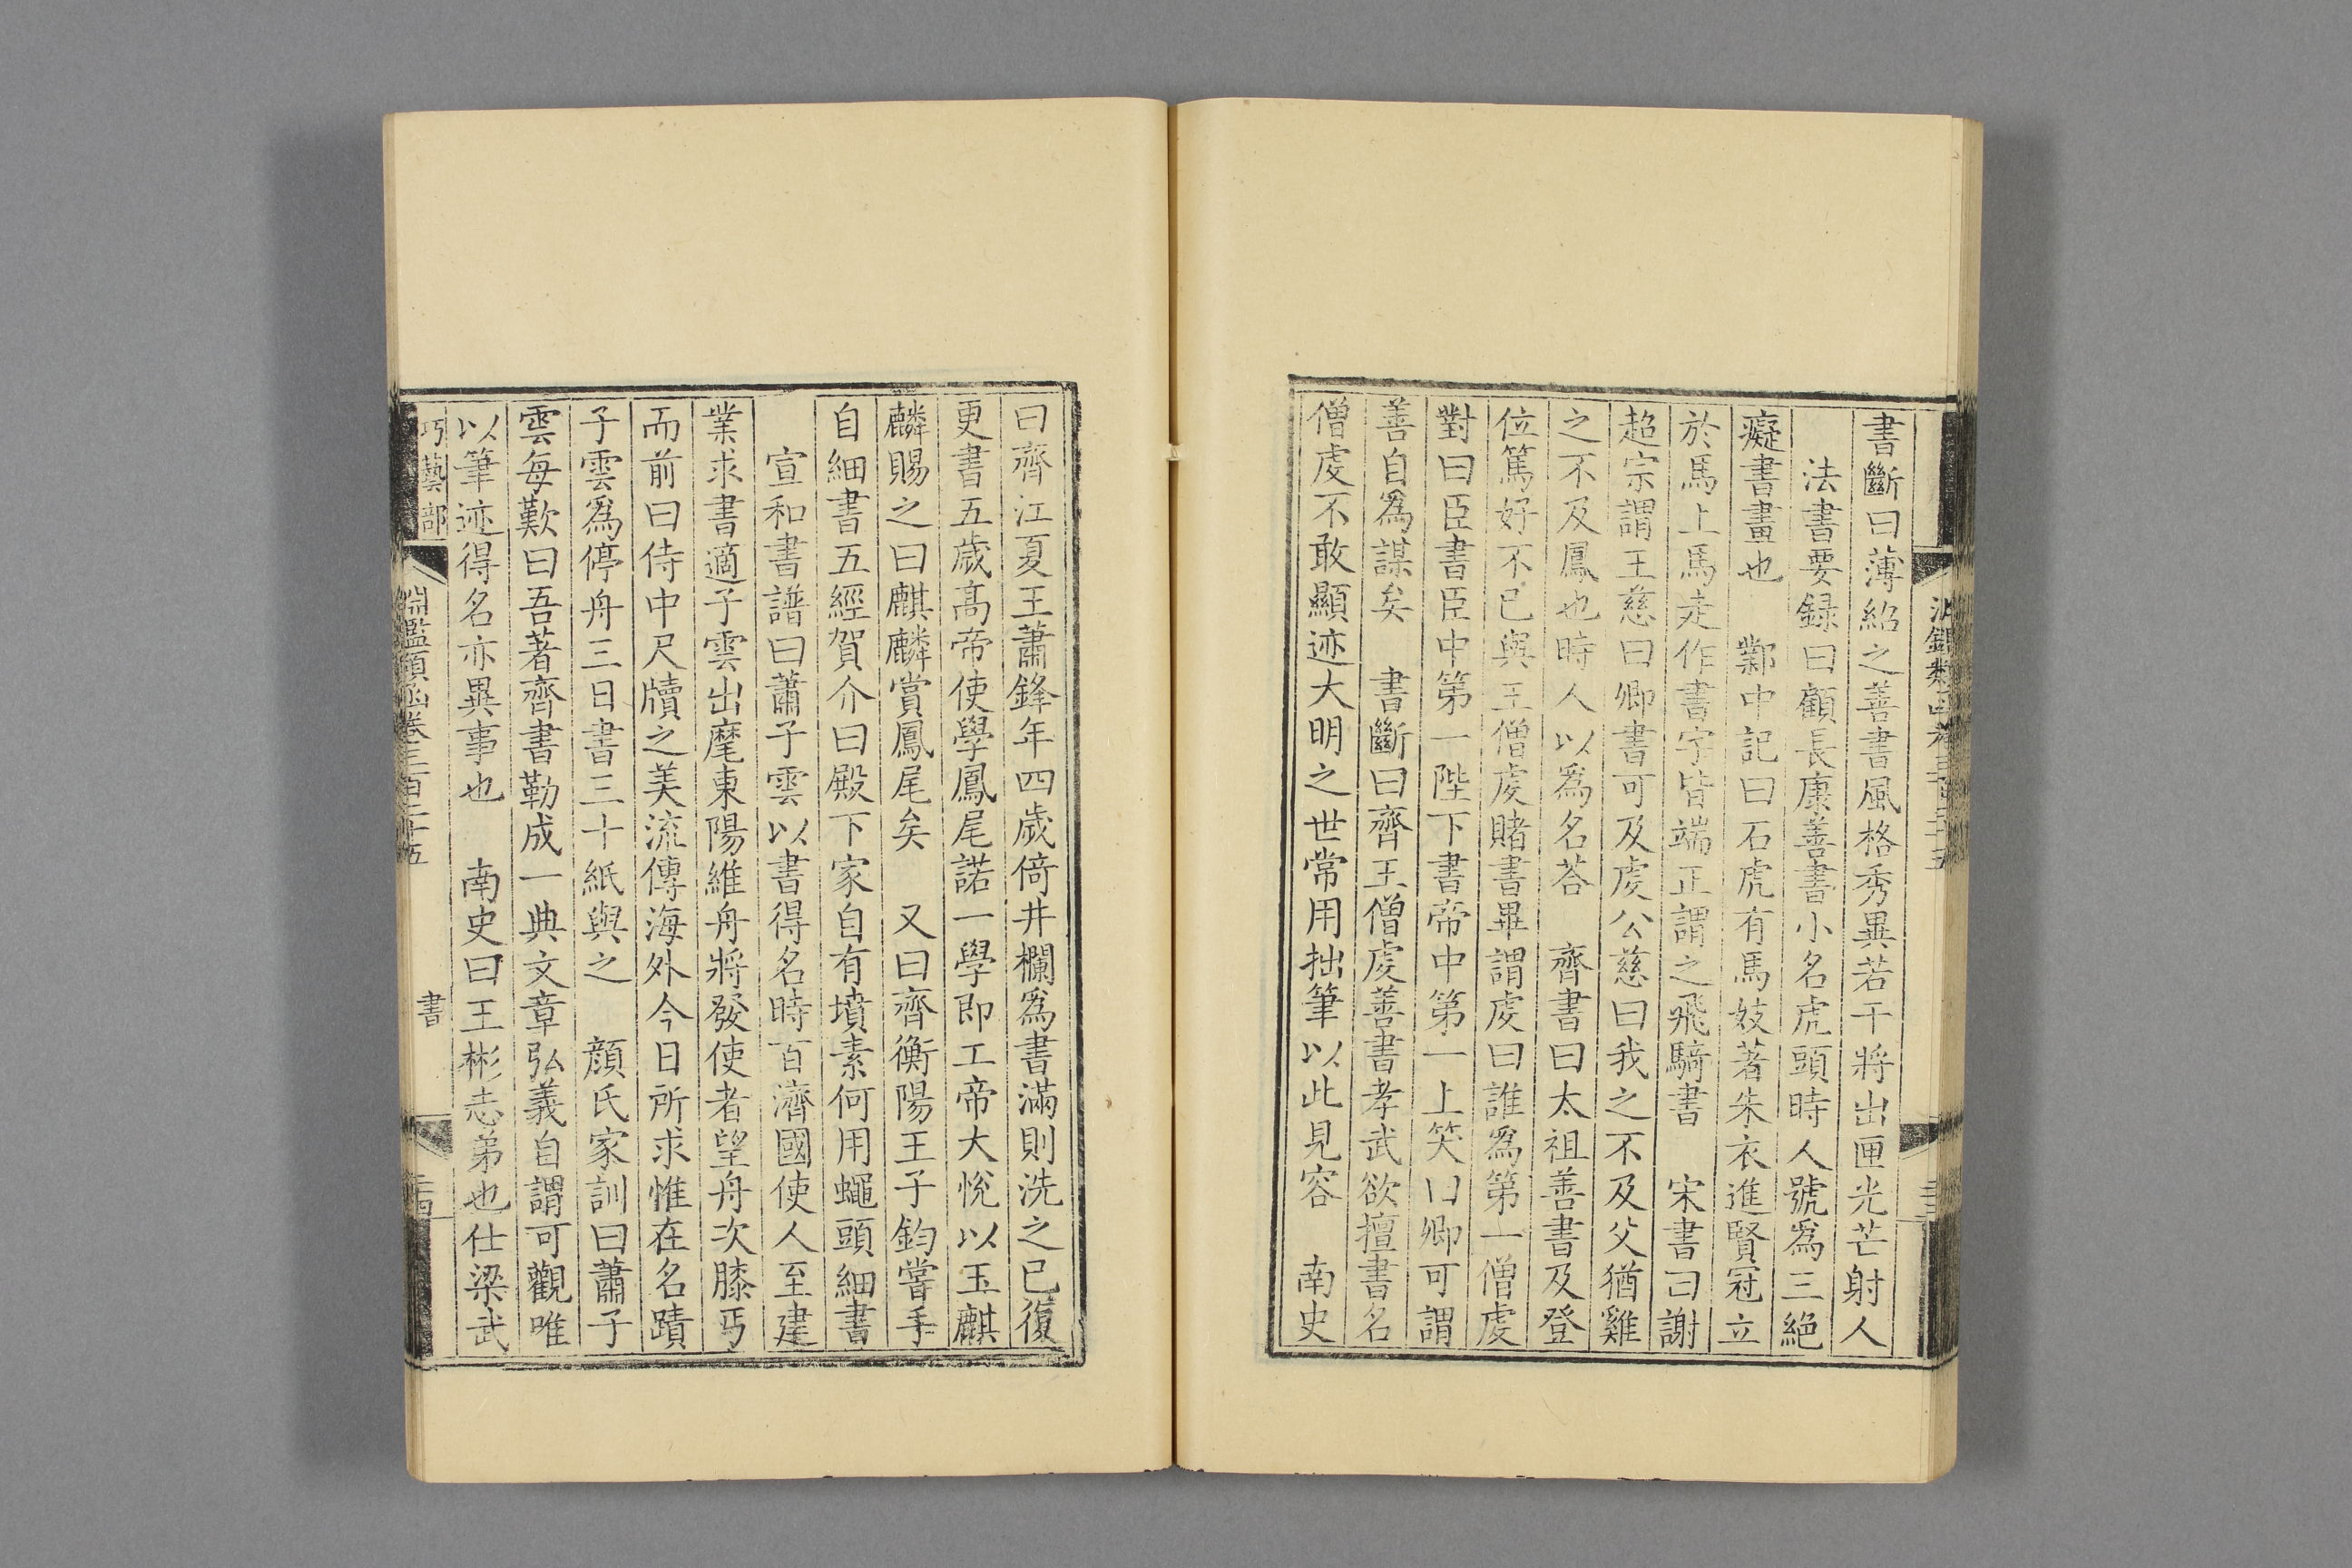 書斷曰薄紹之善書風格秀異若干將出匣光芒射人
法書要録曰顧長康善書小名虎頭時人號爲三絶
癡書畫也　鄴中記曰石虎有馬妓著朱衣進賢冠立
於馬上馬走作書字皆端正謂之飛騎書　宋書曰謝
超宗謂王慈曰卿書可及虔公慈曰我之不及父猶雞
之不及鳳也時人以爲名荅　齊書曰太祖善書及登
位篤好不已與王僧虔賭書畢謂虔曰誰爲第一僧虔
對曰臣書臣中第一陛下書帝中第一上笑曰卿可謂
善自爲謀矣　書斷曰齊王僧虔善書孝武欲擅書名
僧虔不敢顯迹大明之世常用拙筆以此見容　南史
曰齊江夏王蕭鋒年四歲倚井欄爲書滿則洗之已復
更書五歲高帝使學鳳尾諾一學即工帝大悅以玉麒
麟賜之曰麒麟賞鳳尾矣　又曰齊衡陽王子鈞嘗手
自細書五經賀介曰殿下家自有墳素何用蠅頭細書
宣和書譜曰蕭子雲以書得名時百濟國使人至建
業求書適子雲出麾東陽維舟將發使者望舟次膝丐
而前曰侍中尺牘之美流傳海外今日所求惟在名蹟
子雲爲停舟三日書三十紙與之　顔氏家訓曰蕭子
雲每歎曰吾著齊書勒成一典文章弘義自謂可觀唯
以筆迹得名亦異事也　南史曰王彬志弟也仕梁武
巧藝部
淵鑑類函卷三百二十五
書
三四